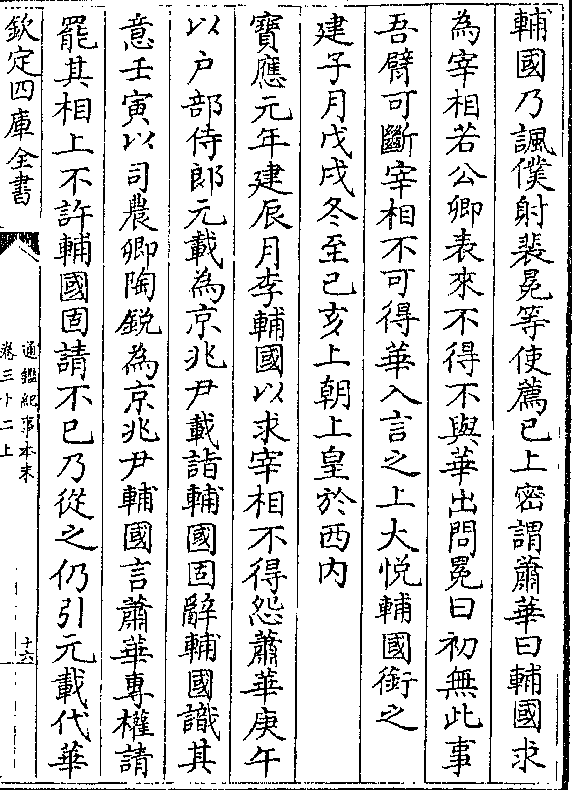 輔國乃諷僕射裴冕等使薦已上密謂蕭華曰輔國求
為宰相若公卿表來不得不與華出問冕曰初無此事
吾臂可斷宰相不可得華入言之上大悅輔國銜之
建子月戊戌冬至已亥上朝上皇於西内
寶應元年建辰月李輔國以求宰相不得怨蕭華庚午
以户部侍郎元載為京兆尹載詣輔國固辭輔國識其
意壬寅以司農卿陶銳為京兆尹輔國言蕭華專權請
罷其相上不許輔國固請不已乃從之仍引元載代華
欽定四庫全書
通鑑紀事本末
卷三十二上
十六